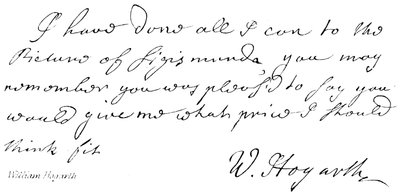 I have done all I can to the
Picture of Sigismunda you may
remember you was pleas'd to say you
would give me what price I should
think fit
W. Hogarth
William Hogarth